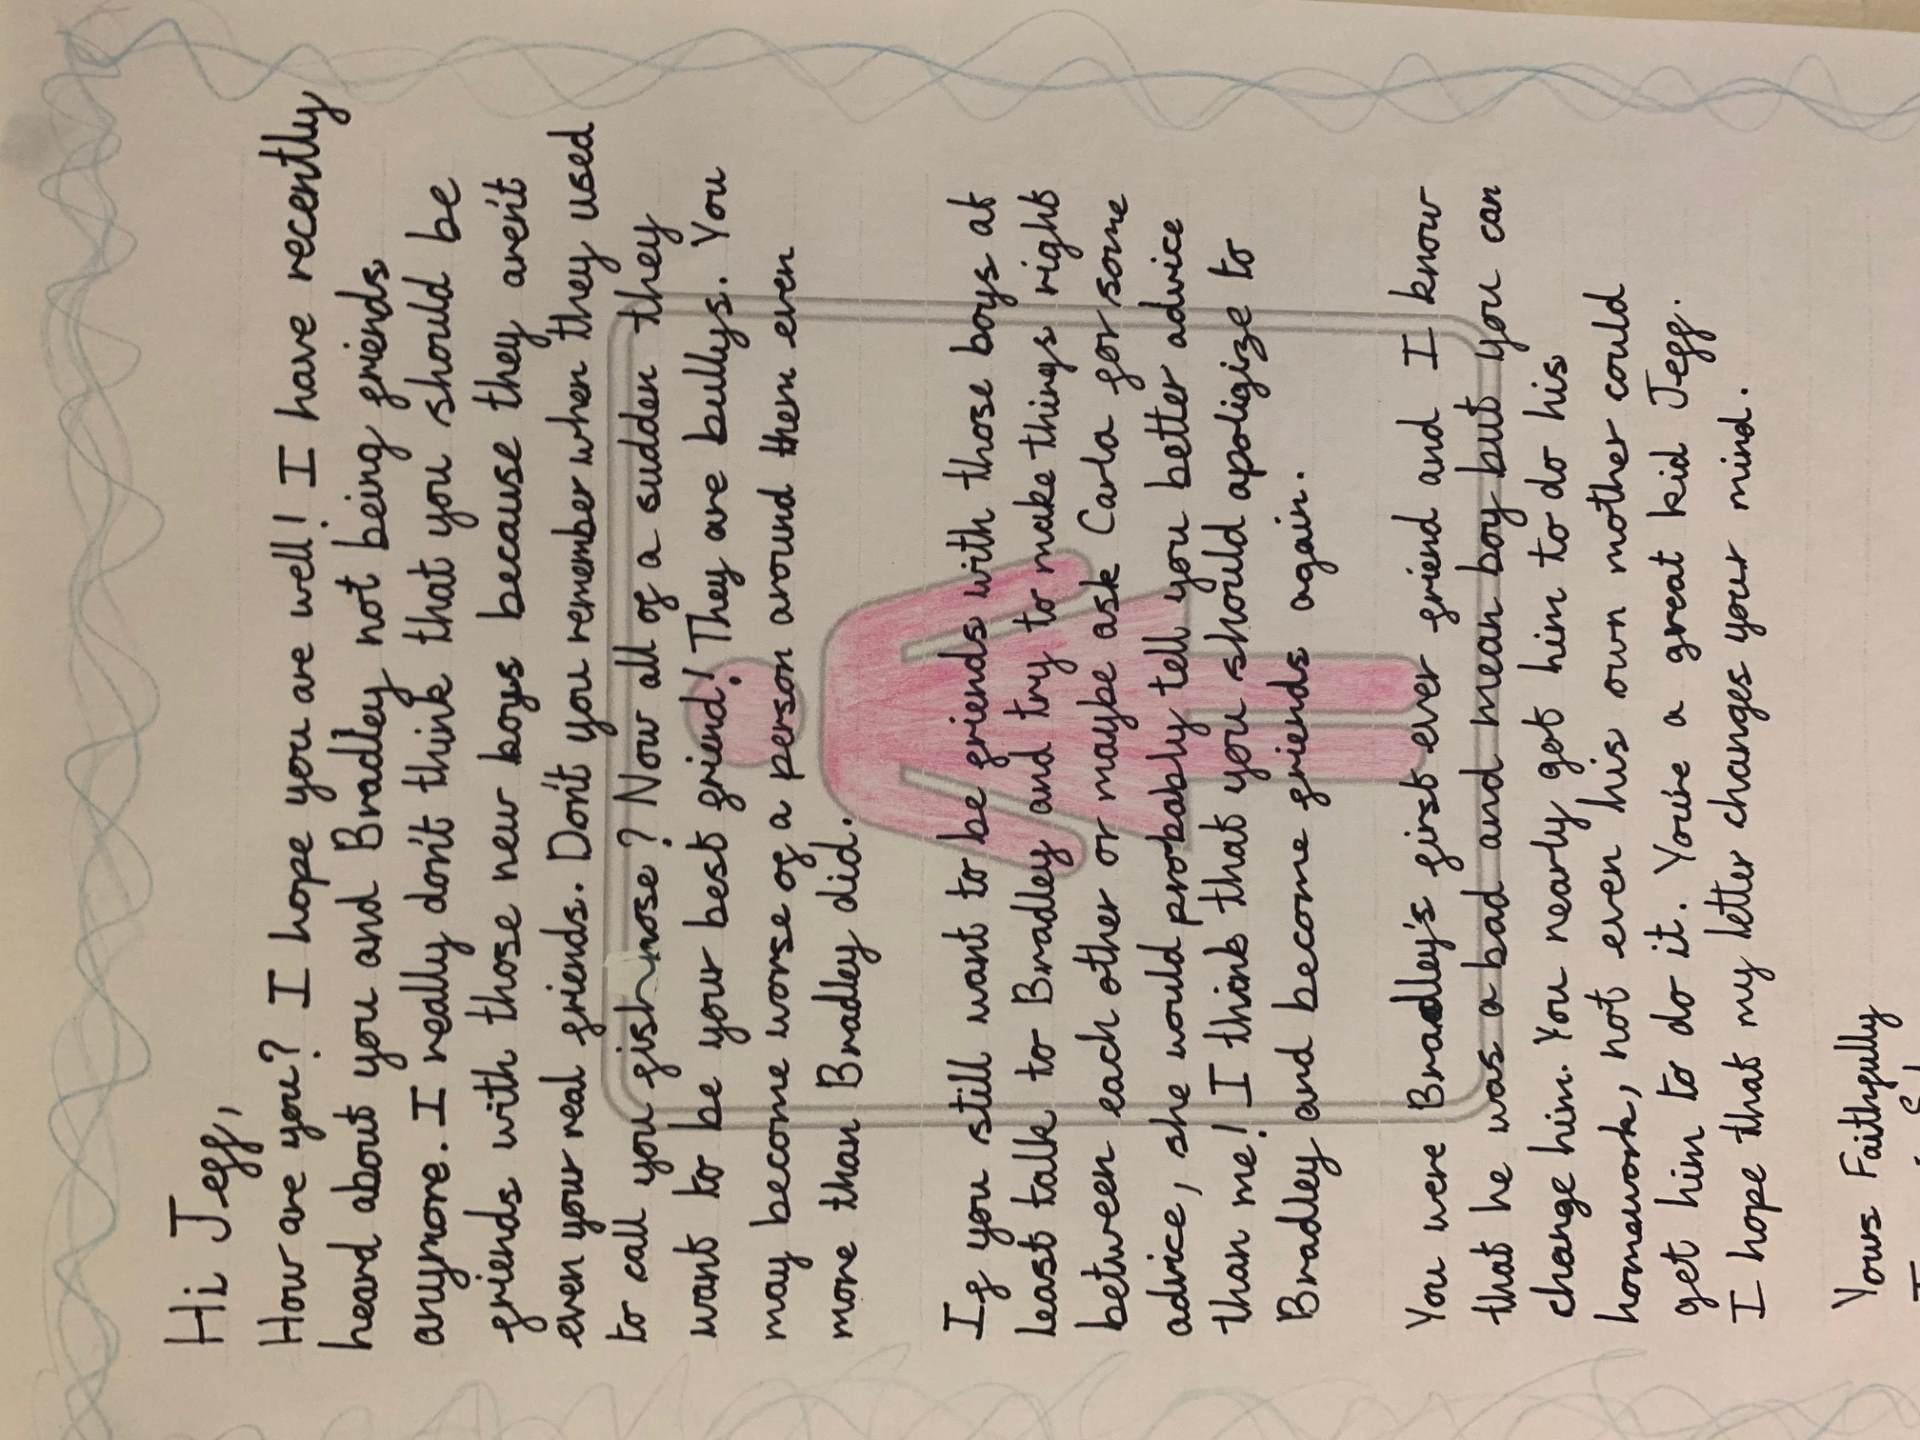 Hi Jeff,
How are you? I hope you are well! I have recently
heard about you and Bradley not being friends
anymore. I really don't think that you should be
friends with those new boys because they aren't
even your real friends. Don't you remember when they used
to call you fish nose? Now all of a sudden they
want to be your best friend! They are bullys. You
may become worse of a person around them even
more than Bradley did.
If you still want to be friends with those boys at
least talk to Bradley and try to make things right
between each other or maybe ask Carla for some
advice, she would probably tell you better advice
than me! I think that you should apoligize to
Bradley and become friends again.
You were Bradley's first ever friend and I know
that he was a bad and mean boy but you can
change him. You nearly got him to do his
homework, not even his own mother could
get him to do it. You're a great kid Jeff.
I hope that my letter changes your mind.
Yours Faithfully